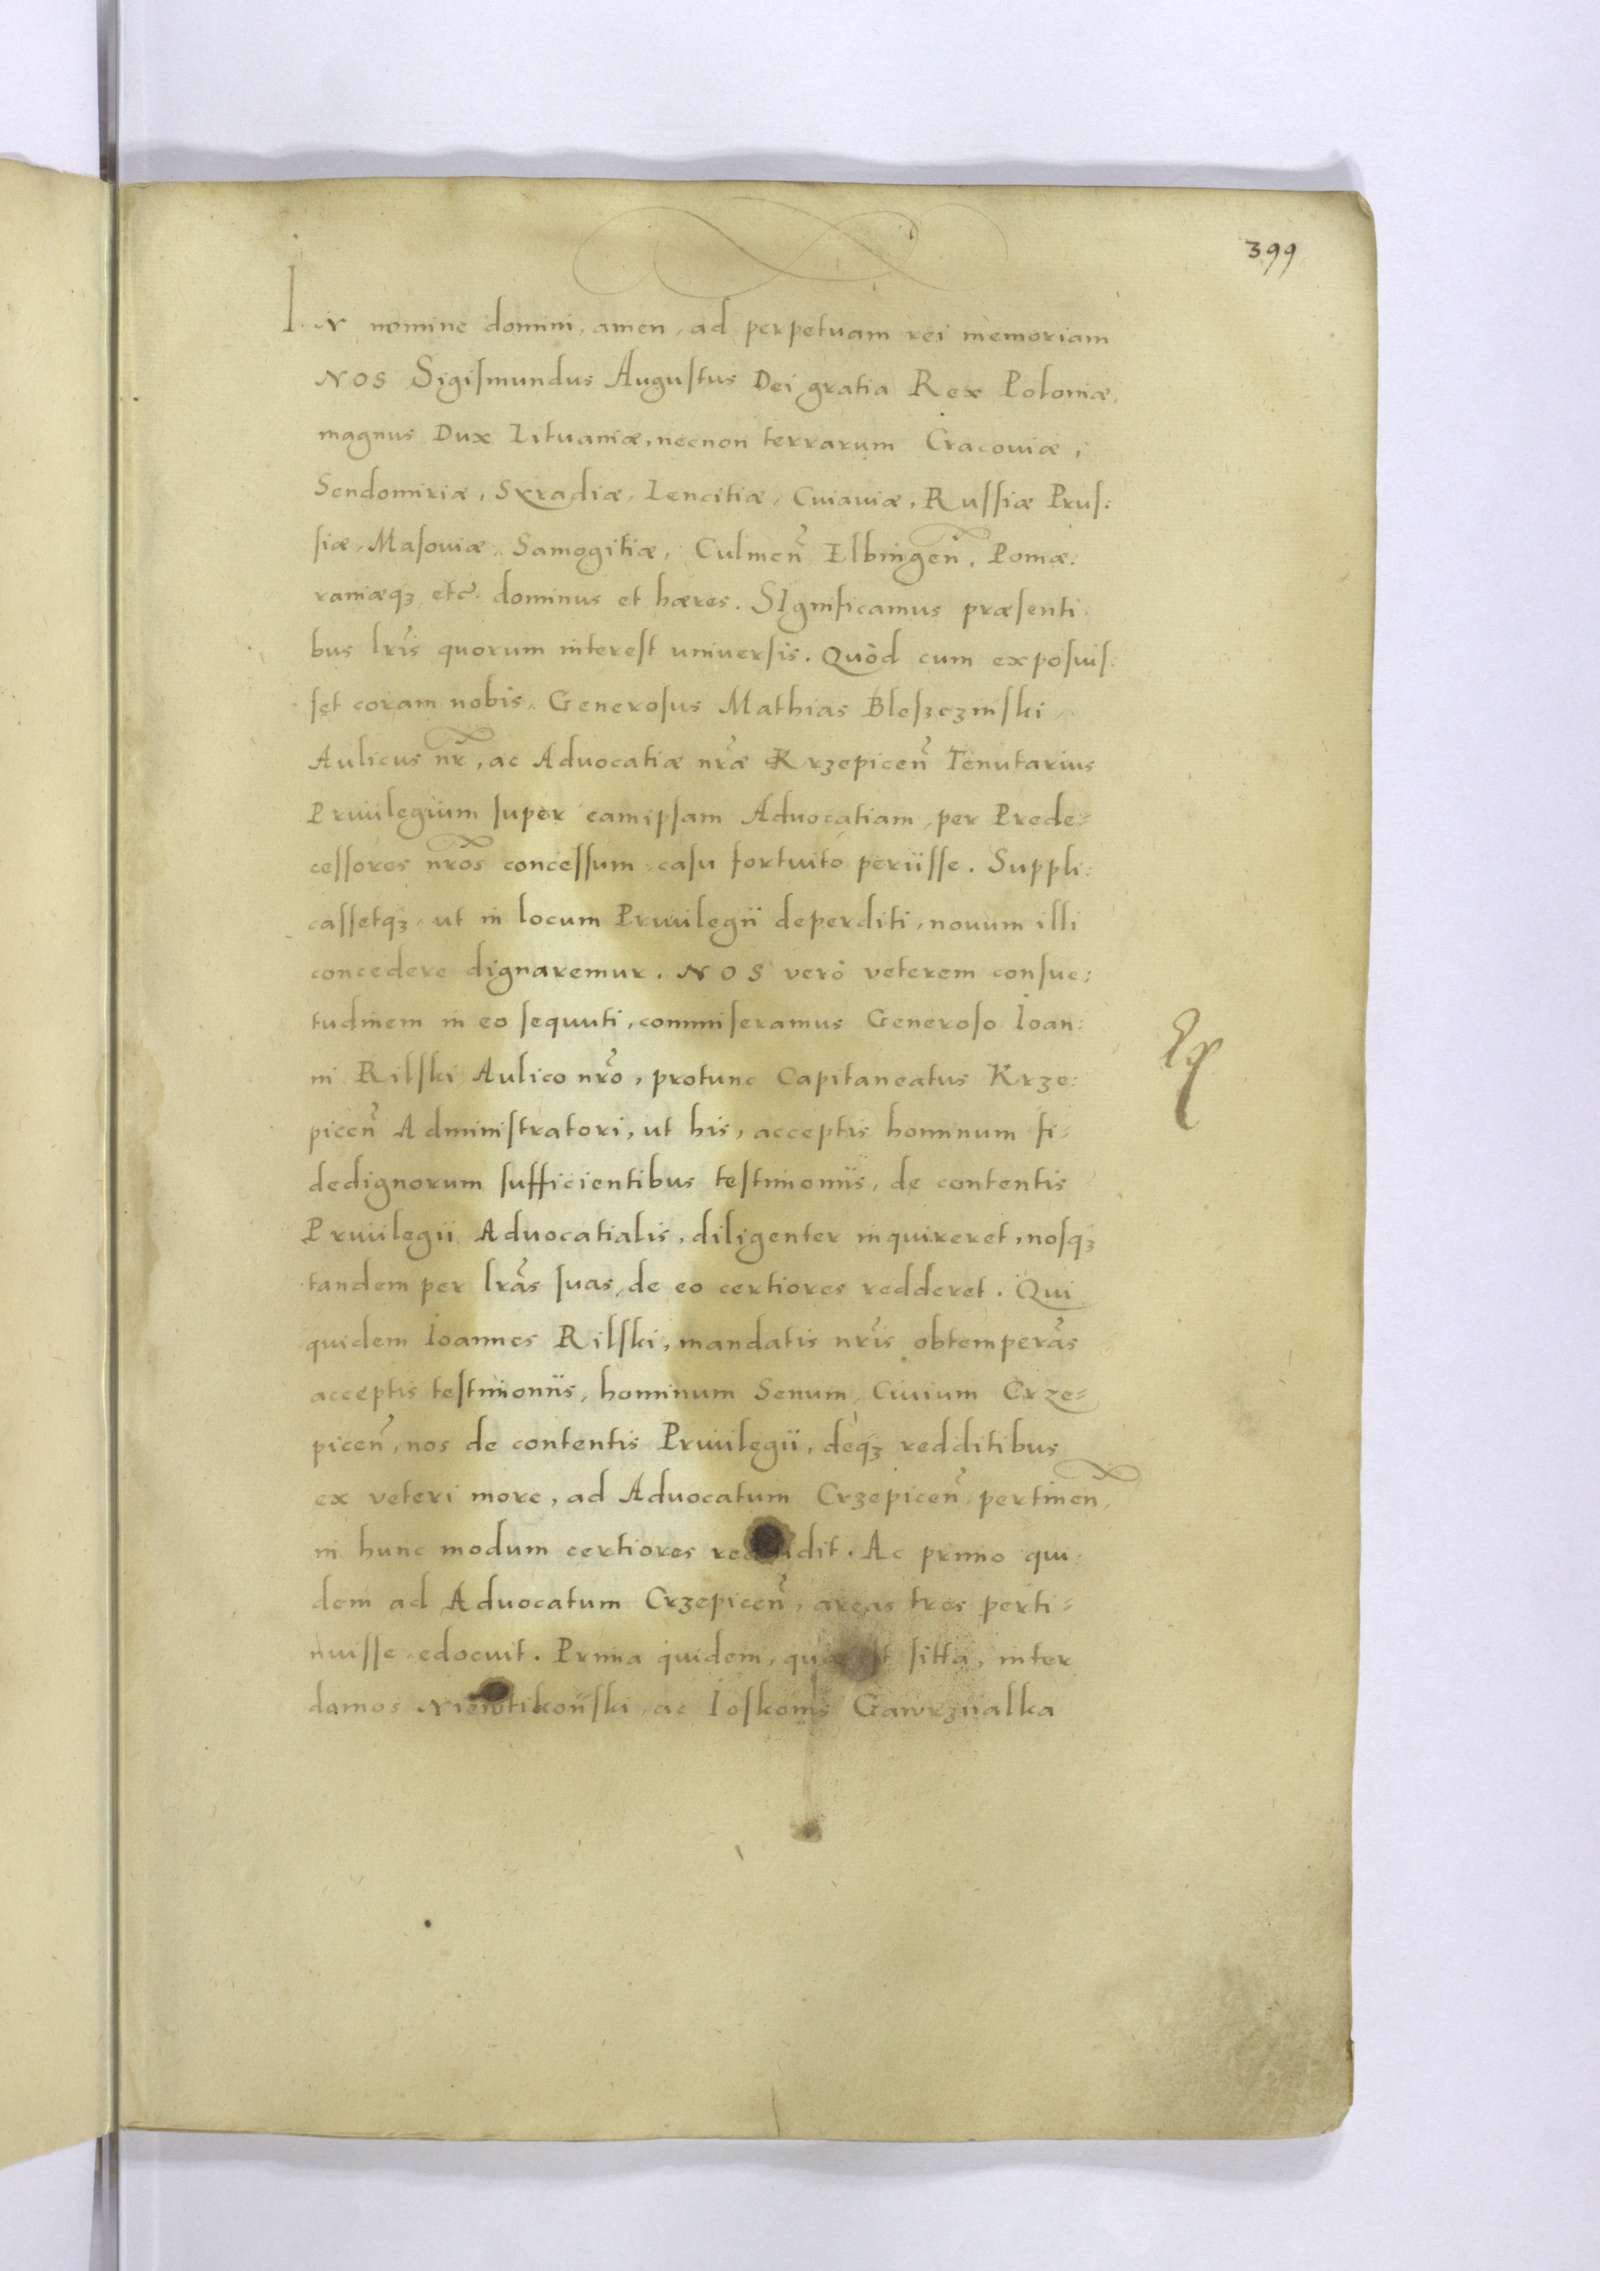 399
IN nomine domini, amen, ad perpetuam rei memoriam
NOS Sigiſmundus Auguſtus Dei gratia Rex Poloniæ,
magnus Dux Lituaniæ, necnon terrarum Cracouiæ,
Sendomiriæ, Syradiæ, Lencitiæ, Cuiauiæ, Ruſſiæ Pruſ:
ſiæ, Maſouiæ, Samogitiæ, Culmen̄ Elbingen̄, Pomæ:
raniæqꝫ etc̄. dominus et hæres. SIgnificamus præſenti
bus lr̄is quorum intereſt uniuerſis. Quòd cum expoſuiſ:
ſet coram nobis, Generoſus Mathias Bleſzczinſki
Aulicus nr̄, ac Aduocatiæ nr̄æ Krzepicen̄ Tenutarius
Priuilegium ſuper eamipſam Aduocatiam, per Prede=
ceſſores nr̄os conceſſum, caſu fortuito periiſſe. Suppli:
caſſetqꝫ, ut in locum Priuilegii deperditi, nouum illi
concedere dignaremur. NOS verò veterem conſue:
tudinem in eo ſequuti, commiſeramus Generoſo Ioan:
ni Rilſki Aulico nr̄o, protunc Capitaneatus Krze:
picen̄ Adminiſtratori, ut his, acceptis hominum fi=
dedignorum ſufficientibus teſtimoniis, de contentis
Priuilegii Aduocatialis, diligenter inquireret, noſqꝫ
tandem per lr̄as ſuas, de eo certiores redderet. Qui
quidem Ioannes Rilſki, mandatis nr̄is obtemperās
acceptis teſtimoniis, hominum Senum, Ciuium Crze=
picen̄, nos de contentis Priuilegii, deqꝫ redditibus
ex veteri more, ad Aduocatum Crzepicen̄, pertinen̄,
in hunc modum certiores reddidit. Ac primo qui:
dem ad Aduocatum Crzepicen̄, areas tres perti=
nuiſſe, edocuit. Prima quidem, quæ eſt ſitta, inter
domos ac Gawrziialka